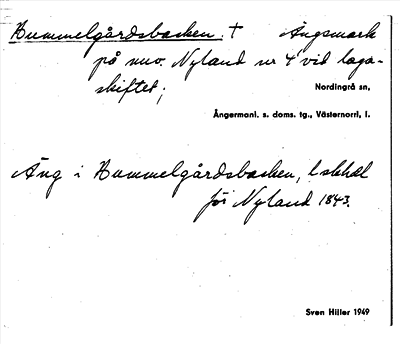 Hummelgårdsbacken. † Ängsmark
på nuv. Nyland nr 4 vid laga-
skiftet;
Nordingrå sn,
Ångermanl. s. doms. tg., Västernorrl, l.
Äng i Hummelgårdsbacken, lskhdl
för Nyland 1843.
Sven Hiller 1949